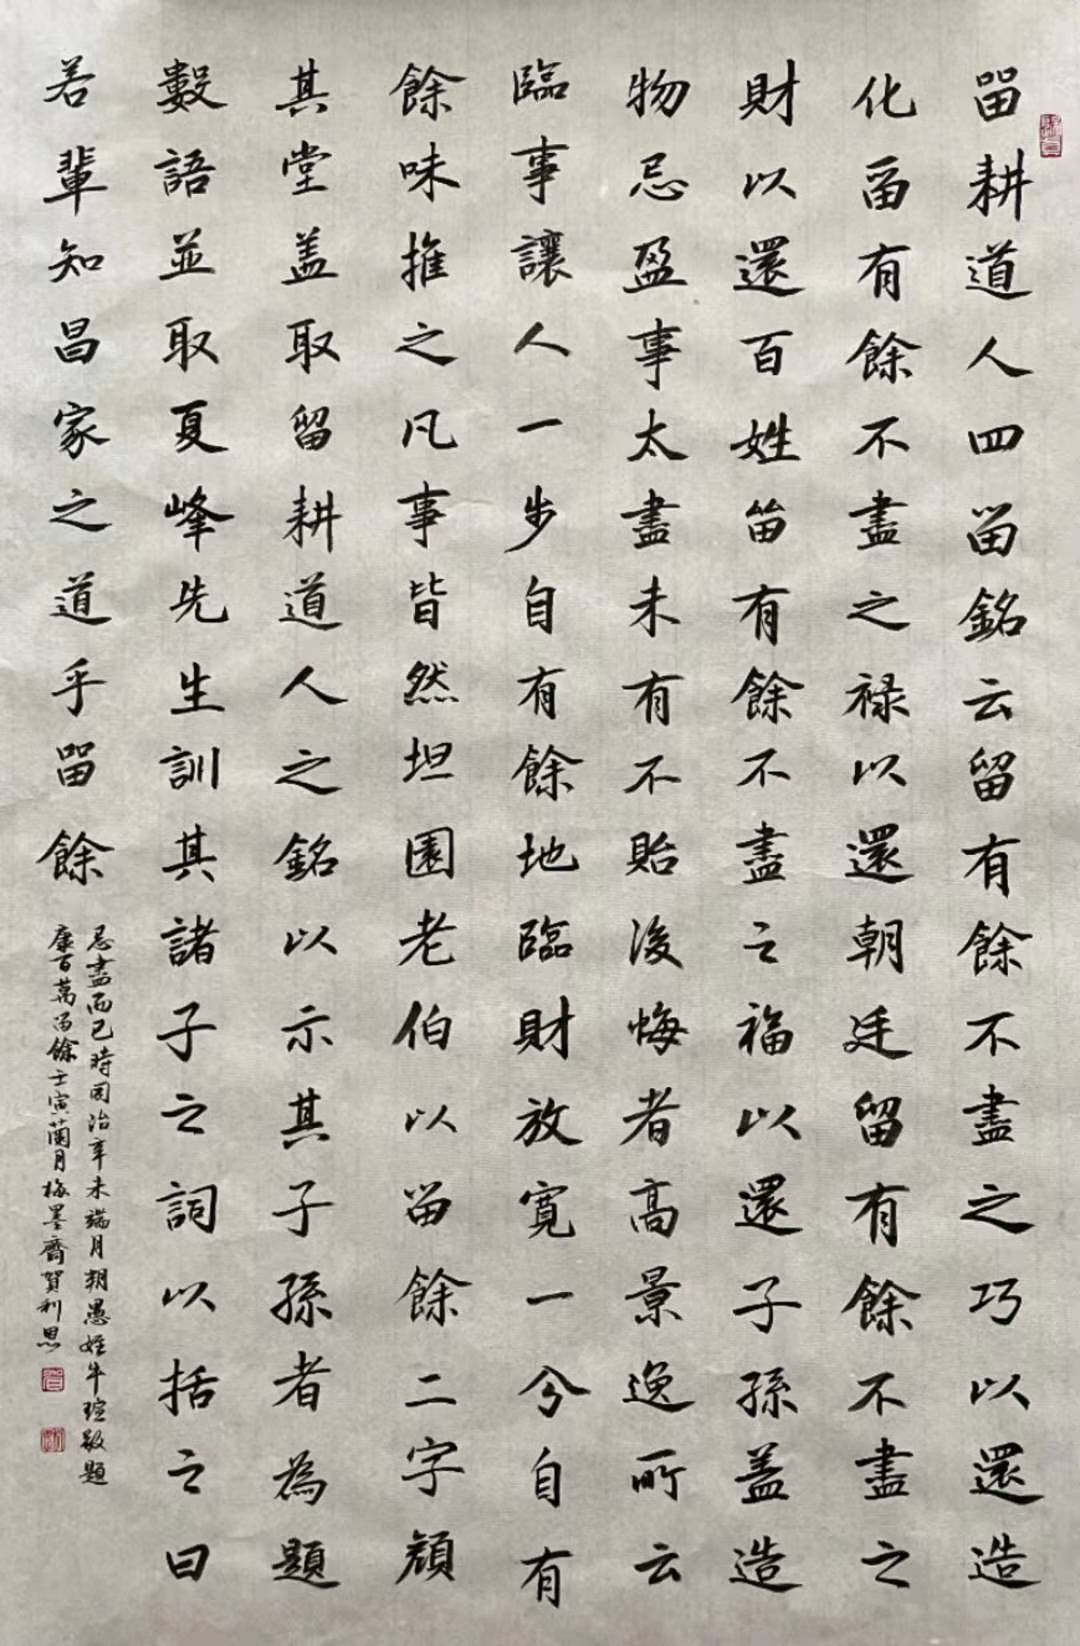 留耕道人四留銘云留有餘不盡之巧以還造
化留有餘不盡之禄以還朝廷留有餘不盡之
財以還百姓留有餘不盡之福以還子孫盖造
物忌盈事太盡未有不貽後悔者高景逸所云
臨事讓人一步自有餘地臨財放寬一分自有
餘味推之凡事皆然坦園老伯以留餘二字顏
其堂盖取留耕道人之銘以示其子孫者為題
數語並取夏峰先生訓其諸子之詞以括之曰
若輩知昌家之道乎留餘
忌盡而已時同治辛未端月朔愚姪牛瑄敬題
康百萬留餘壬寅蘭月梅墨齋賀利思